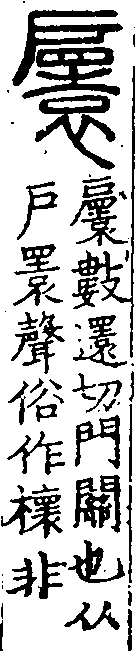 𢩠
𢩠數還切門關也从
戶睘聲俗作非